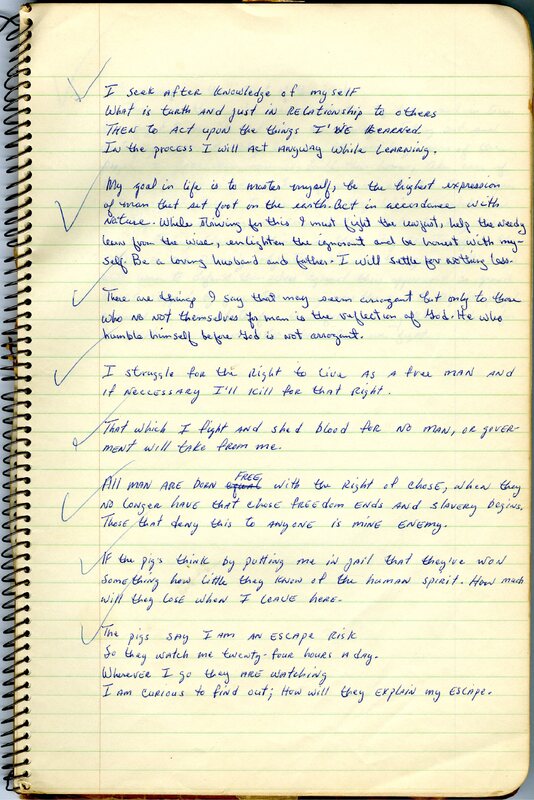 I seek after knowledge of myself
What is turth and just in relationship to others
Then to act upon the things I've learned
In the process I will act anyway while learning.
My goal in life is to master myself, be the highest expression
of man that set foot on the earth. Act in accordance with
nature. While striving for this I must fight the unjust, help the needy
learn from the wise, enlighten the ignorant and be honest with my-
self. Be a loving husband and father. I will settle for nothing less.
There are things I say that may seem arrogant but only to those
who no not themselves for man is the reflection of God. He who
humble himself before God is not arrogant.
I struggle for the right to live as a free man and
if neccessary I'll kill for that right.
That which I fight and shed blood for no man, or gover-
ment will take from me.
All man are born equal FREE with the right of chose, when they
no longer have that chose freedom ends and slavery begins.
Those that deny this to anyone is mine enemy.
If the pigs think by putting me in jail that they've won
something how little they know of the human spirit. How much
will they lose when I leave here.
The pigs say I am an escape risk
So they watch me twenty-four hours a day.
Wherever I go they are watching
I am curious to find out; How will they explain my escape.